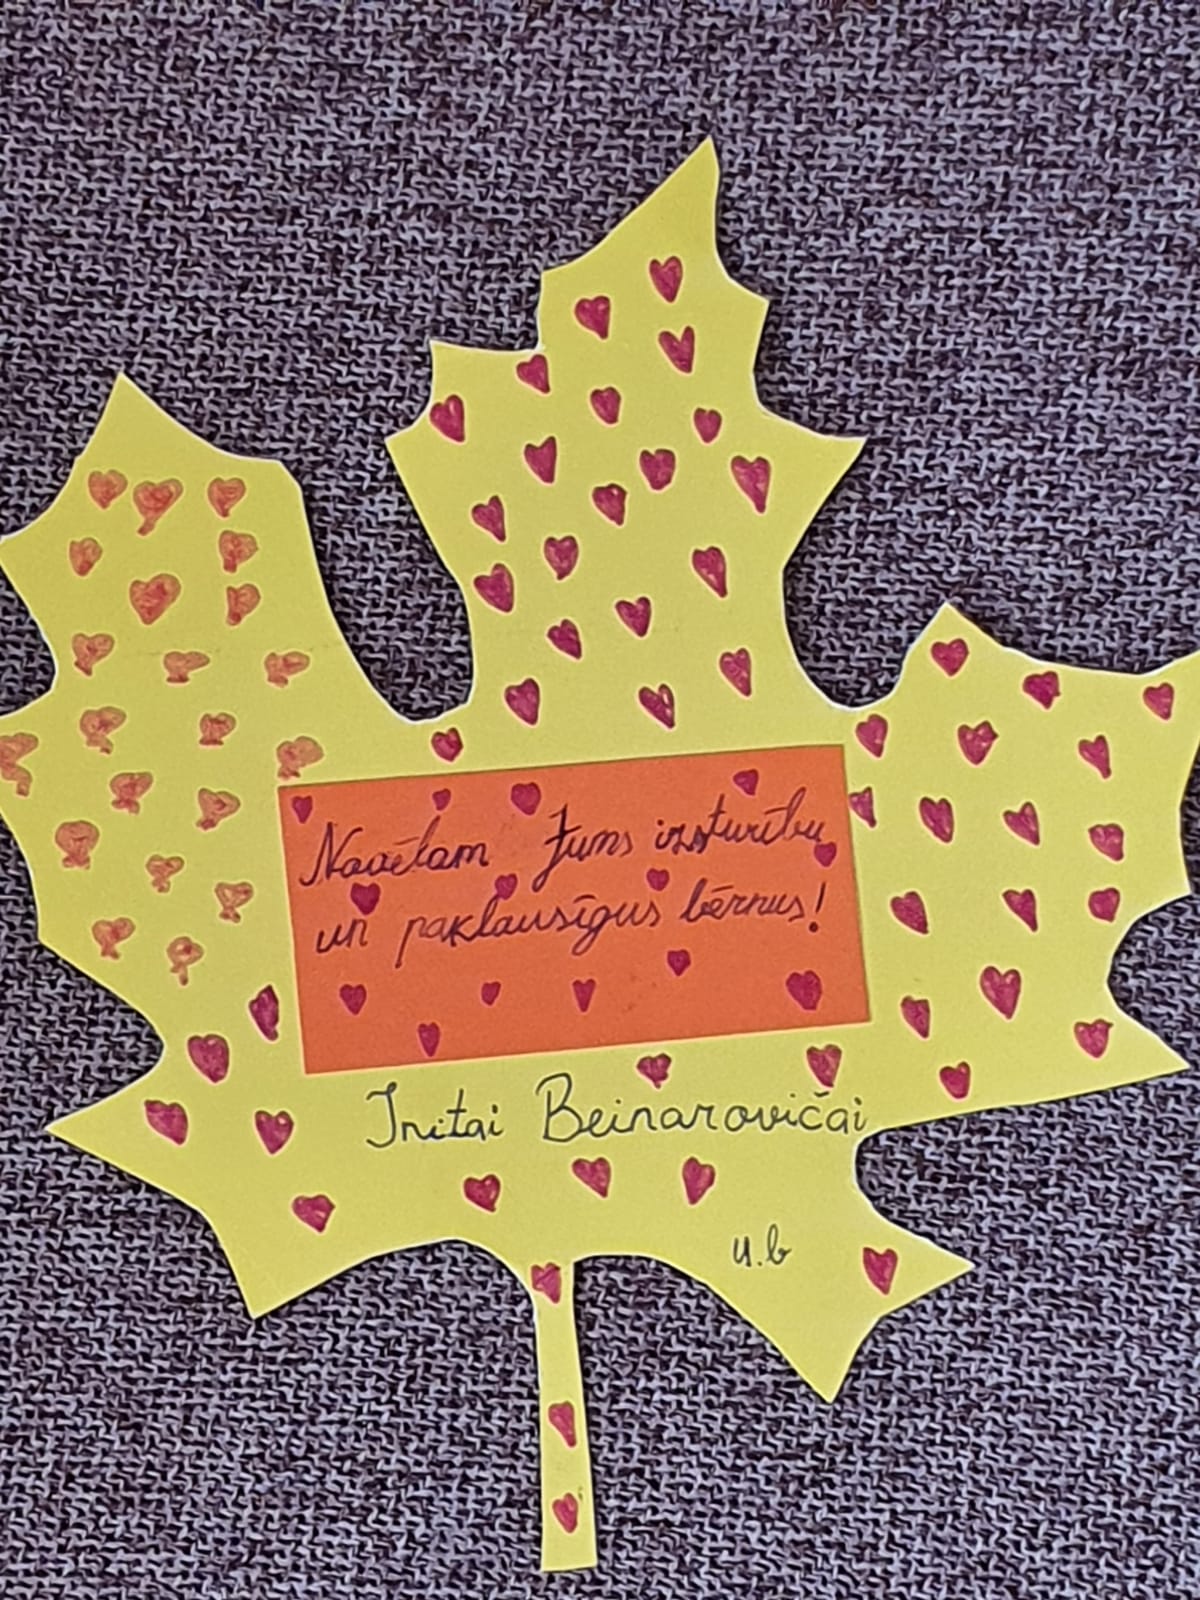 Novēlam Jums izsturību
un paklausīgus bērnus!
Initai Beinarovičai
4.b